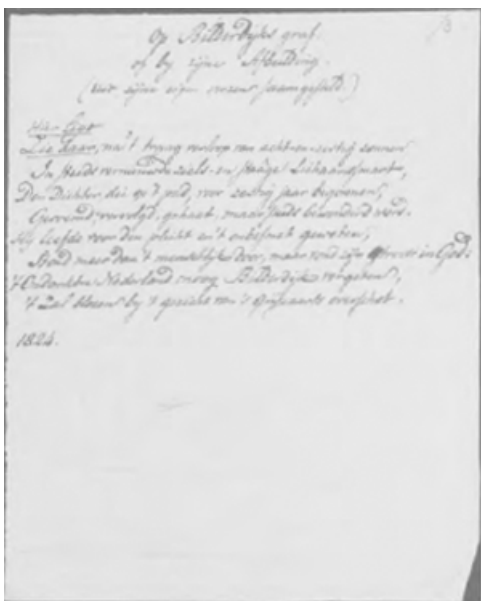 Op Bilderdijks graf.
of by zijne Afbeelding.
(uit zijne eigen verzen saamgesteld.)
Hier ligt
Zie daar, na 't traag verloop van acht-en-zestig zonnen
In steeds vernieuwde ziels- en lichaamssmarte,
Den Dichter, die op 't veld, voor zestig jaar begonnen,
Gevreesd, vervolgd, gehaat, maar steeds bewonderd werd.
Hy leefde voor den plicht en 't onbesmet geweten,
Stond meer dan 't menschlijke door, maar vond zijn in God:
't Ondankbre Nederland moog Bilderdijk vergeten,
't Zal blozen by 't gezicht van 's Grijsaarts overschot.
1824.